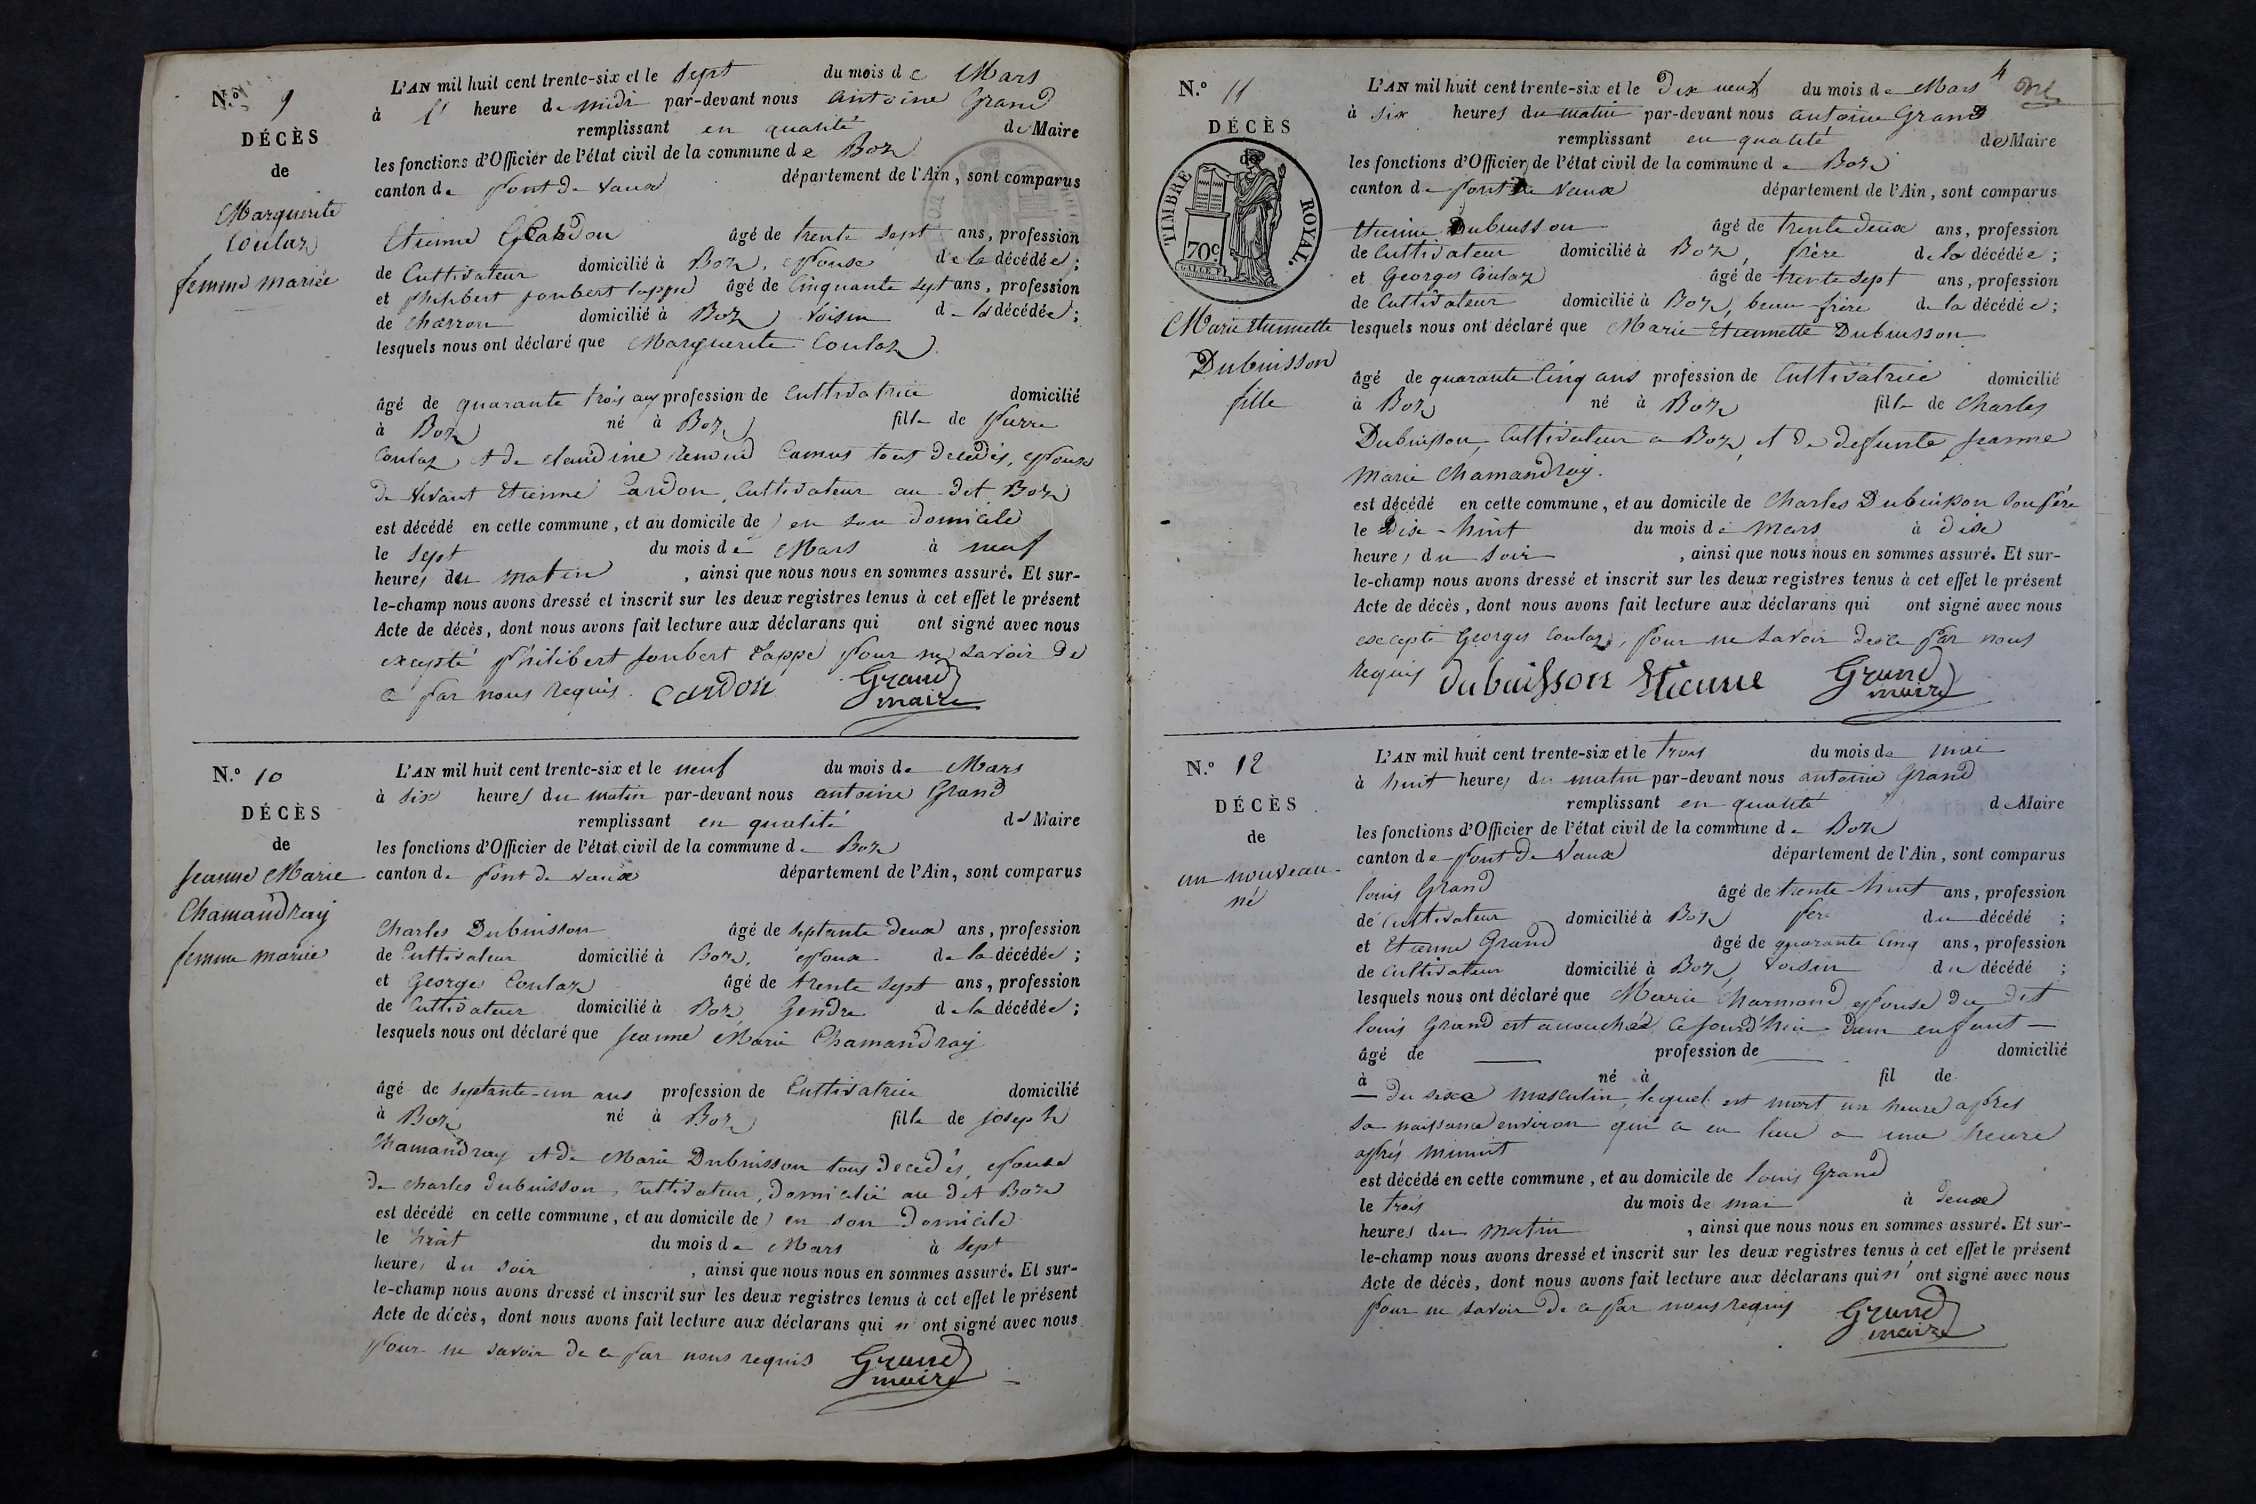 N.° 9
DÉCÈS
de
Marguerite
Coulaz
femme mariée
L'AN mil huit cent trente-six et le sept du mois de Mars
à l' heure de midi par-devant nous antoine Grand
remplissant en qualité de Maire
les fonctions d'Officier de l'état civil de la commune de Boz
canton de pont de vaux département de l'Ain, sont comparus
Etienne Cardon âgé de trente sept ans, profession
de Cultivateur domicilié à Boz, epouse de la décédée;
et philibert joubert tappe âgé de Cinquante sept ans, profession
de charron domicilié à Boz, voisin de la décédée;
lesquels nous ont déclaré que Marguerite Coulaz
âgé de quarante trois ans profession de Cultivatrice domicilié
à Boz né à Boz fille de pierre
Coulaz et de claudine renoud Camus tous decedés, epouse
de vivant Etienne Cardon, Cultivateur au dit Boz
est décédé en cette commune, et au domicile de en son domicile
le sept du mois de Mars à neuf
heures du matin, ainsi que nous nous en sommes assuré. Et sur-
le-champ nous avons dressé et inscrit sur les deux registres tenus à cet effet le présent
Acte de décès, dont nous avons fait lecture aux déclarans qui ont signé avec nous
excepté philibert joubert tappe pour ne savoir de
ce par nous requis. Cardon Grand
maire
N.° 10
DÉCÈS
de
jeanne Marie
Chamandray
femme mariée
L'AN mil huit cent trente-six et le neuf du mois de Mars
à six heures du matin par-devant nous antoine Grand
remplissant en qualité de Maire
les fonctions d'Officier de l'état civil de la commune de Boz
canton de pont de vaux département de l'Ain, sont comparus
Charles Dubuisson âgé de septante deux ans, profession
de Cultivateur domicilié à Boz, époux de la décédée;
et George Coulaz âgé de trente sept ans, profession
de Cultivateur domicilié à Boz Gendre de la décédée;
lesquels nous ont déclaré que jeanne Marie Chamandray
âgé de septante-un ans profession de Cultivatrice domicilié
à Boz né à Boz fille de joseph
Chamandray et de Marie Dubuisson tous decedés, epouse
de charles dubuisson, Cultivateur, domicilié au dit Boz
est décédé en cette commune, et au domicile de en son domicile
le huit du mois de Mars à sept
heures du soir, ainsi que nous nous en sommes assuré. Et sur-
le-champ nous avons dressé et inscrit sur les deux registres tenus à cet effet le présent
Acte de décès, dont nous avons fait lecture aux déclarans qui n' ont signé avec nous
pour ne savoir de ce par nous requis Grand
maire
4
N.° 11
DÉCÈS
de
TIMBRE ROYAL.
70c
Marie Etiennette
Dubuisson
fille
L'AN mil huit cent trente-six et le dix neuf du mois de Mars
à six heures du matin par-devant nous antoine Grand
remplissant en qualité de Maire
les fonctions d'Officier de l'état civil de la commune de Boz
canton de pont de vaux département de l'Ain, sont comparus
Etienne Dubuisson âgé de trente deux ans, profession
de Cultivateur domicilié à Boz, frère de la décédée;
et Georges Coulaz âgé de trente sept ans, profession
de Cultivateur domicilié à Boz, beau-frère de la décédée;
lesquels nous ont déclaré que Marie Etiennette Dubuisson
âgé de quarante Cinq ans profession de Cultivatrice domicilié
à Boz né à Boz fille de Charles
Dubuisson, Cultivateur a Boz, et de defunte jeanne
Marie Chamandray.
est décédé en cette commune, et au domicile de Charles Dubuisson son père
le Dix-huit du mois de mars à dix
heures du soir, ainsi que nous nous en sommes assuré. Et sur-
le-champ nous avons dressé et inscrit sur les deux registres tenus à cet effet le présent
Acte de décès, dont nous avons fait lecture aux déclarans qui ont signé avec nous
excepté Georges Coulaz, pour ne savoir de ce par nous
requis dubuisson Etienne Grand
maire
N.° 12
DÉCÈS
de
un nouveau-
né
L'AN mil huit cent trente-six et le trois du mois de mai
à huit heures du matin par-devant nous antoine Grand
remplissant en qualité de Maire
les fonctions d'Officier de l'état civil de la commune de Boz
canton de pont de Vaux département de l'Ain, sont comparus
louis Grand âgé de trente-huit ans, profession
de Cultivateur domicilié à Boz père du décédé;
et Etienne Grand âgé de quarante Cinq ans, profession
de Cultivateur domicilié à Boz, voisin du décédé;
lesquels nous ont déclaré que Marie Charmond epouse du dit
louis Grand est accouchée ce jourd'hui d'un enfant —
âgé de — profession de — domicilié
à né à fil de
— du sexe masculin, lequel est mort un heure après
sa naissance environ qui a eu lieu a une heure
après minuit
est décédé en cette commune, et au domicile de louis Grand
le trois du mois de mai à deux
heures du matin, ainsi que nous nous en sommes assuré. Et sur-
le-champ nous avons dressé et inscrit sur les deux registres tenus à cet effet le présent
Acte de décès, dont nous avons fait lecture aux déclarans qui n' ont signé avec nous
pour ne savoir de ce par nous requis Grand
maire